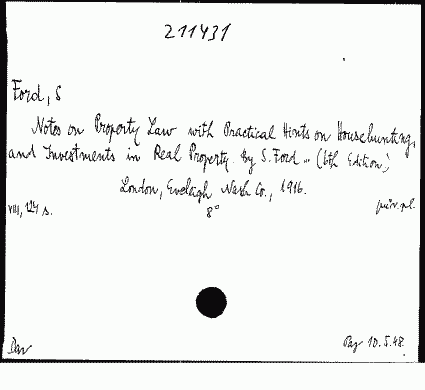 211431
Ford, S
Notes on Property Law with Practical Hints on Househunting,
and Investments in Real Property. By S. Ford ... (6th Edition)
London, Eveleigh Nash Co., 1916.
VIII, 124 s. 8° priv. pl.
Dav Bg 10.5.48.